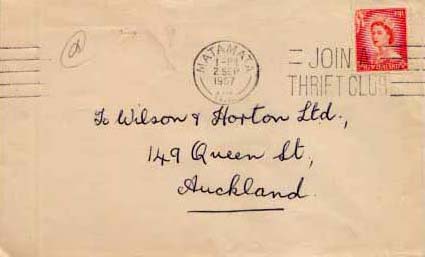 MATAMATA
1-PM
2 SEP
1957
JOIN
THRIFT CLUB
To Wilson & Horton Ltd.,
149 Queen St,
Auckland.